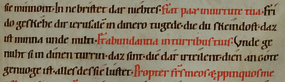 sie minnont. In ne brister dar niehtes. Fiat pax in uirtute tua. Fri
do geskehe dir ierusalem in dinero tugede. diu du skeindost. daz
ist minna unde milti. Et abundantia in turribus tuis. Unde ge
nuht si in dinen turrin. daz sint die dar irteilent. dien an gote
genuoge ist. alles des sie lustet. Propter fratres meos et propinquos me